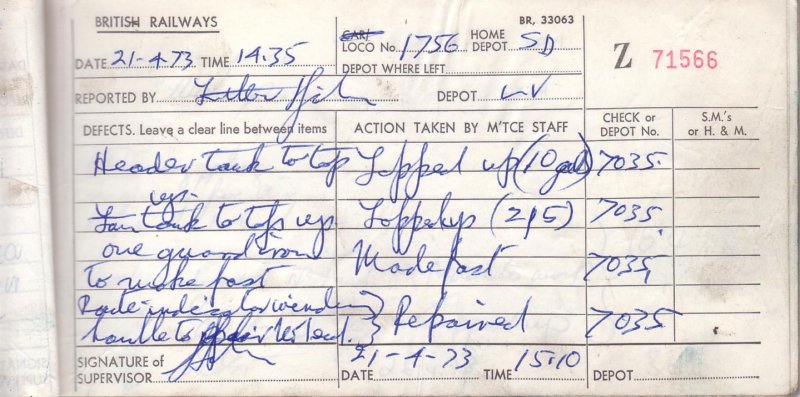 BRITISH RAILWAYS
BR, 33063
DATE 21-4-73 TIME 14.35
CAR/ LOCO No. 1756 HOME DEPOT SD
Z 71566
DEPOT WHERE LEFT
REPORTED BY DEPOT LV
DEFECTS. Leave a clear line between items ACTION TAKEN BY M'TCE STAFF CHECK or DEPOT No. S.M.'s or H. & M.
Header tank to top Topped up (10 gals) 7035.
up.
Fan tank to top up Topped up (2 7035.
one guard iron
to make fast Made fast 7035,
Route indicator winding
handle to } Repaired 7035
SIGNATURE of SUPERVISOR
DATE 21-4-73 TIME 15.10 DEPOT